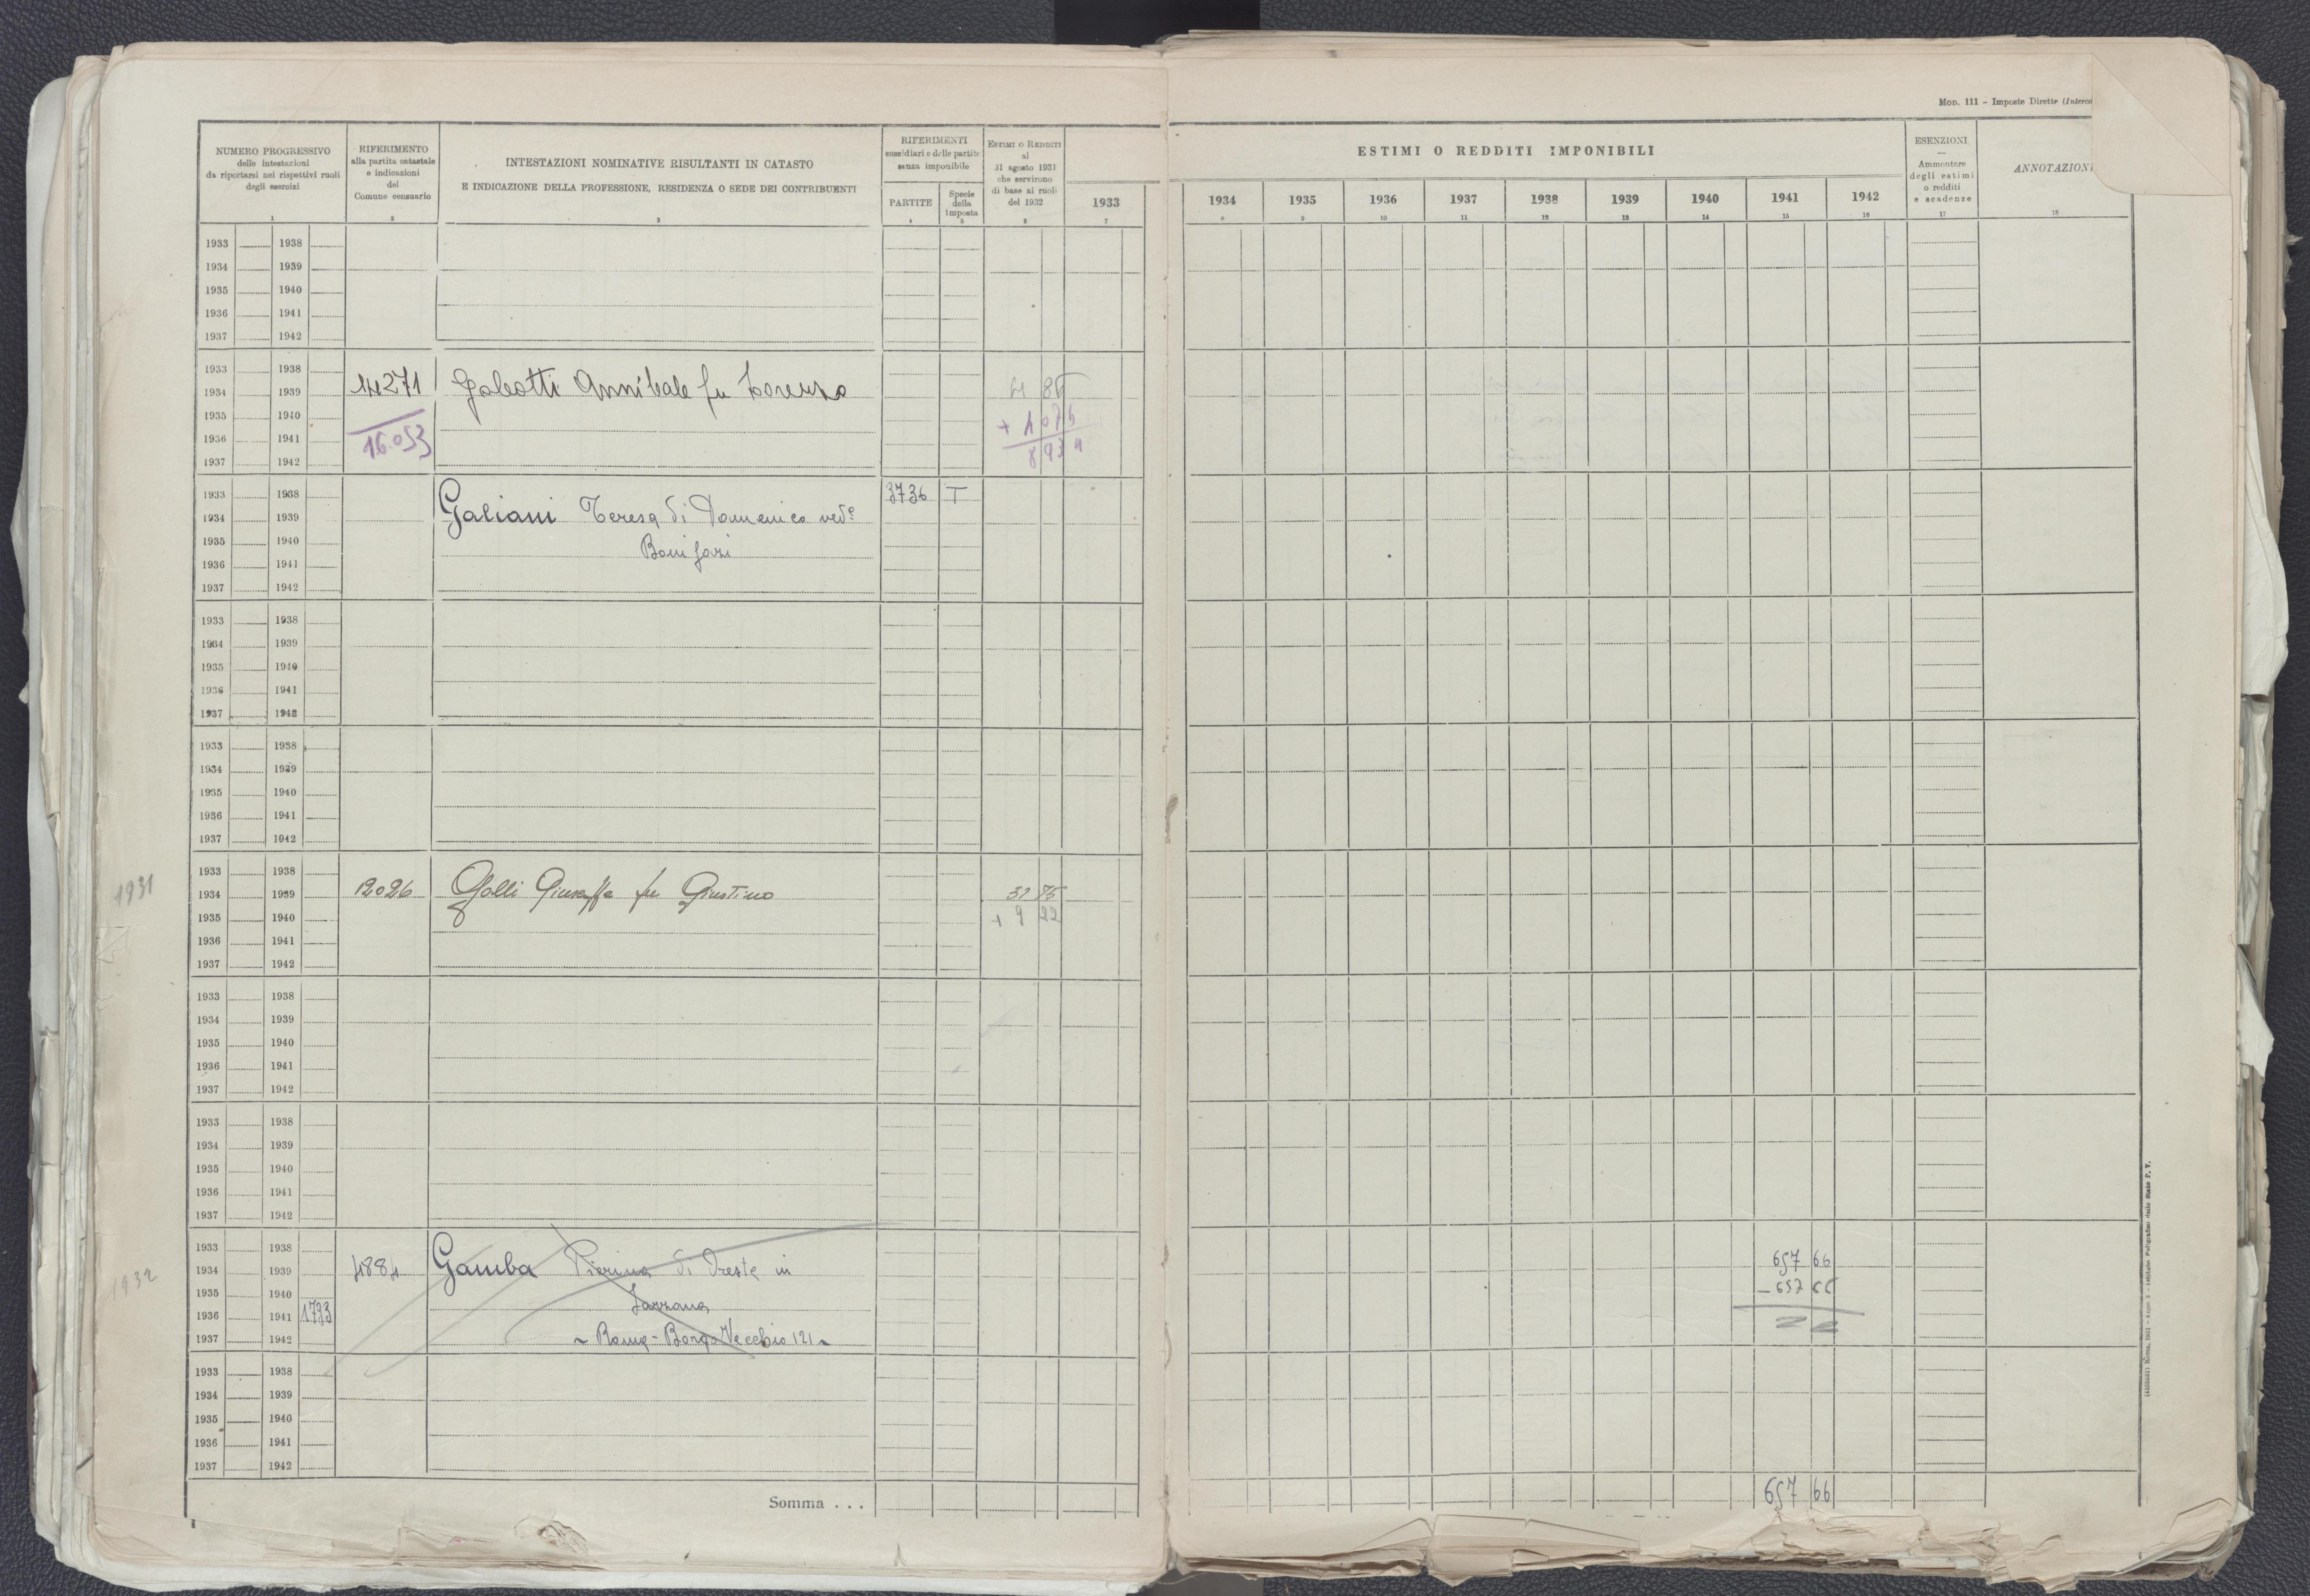 Mod. 111 - Imposte Dirette
NUMERO PROGRESSIVO
delle intestazioni
da riportarsi nei rispettivi ruoli
degli esercizi
1
RIFERIMENTO
alla partita catastale
e indicazioni
del
Comune censuario
2
INTESTAZIONI NOMINATIVE RISULTANTI IN CATASTO
E INDICAZIONE DELLA PROFESSIONE, RESIDENZA O SEDE DEI CONTRIBUENTI
3
RIFERIMENTI
sussidiari e delle partite
senza imponibile
PARTITE
4
Specie
della
imposta
5
ESTIMI O REDDITI
al
31 agosto 1931
che servirono
di base ai ruoli
del 1932
6
1933
7
ESTIMI O REDDITI IMPONIBILI
1934 1935 1936 1937 1938 1939 1940 1941 1942
8 9 10 11 12 13 14 15 16
ESENZIONI
—
Ammontare
degli estimi
o redditi
e scadenze
17
ANNOTAZIONI
18
1933 1938
1934 1939
1935 1940
1936 1941
1937 1942
1933 1938
1934 1939 14271 Galeotti Annibale fu Lorenzo
1935 1940
1936 1941 16.053
1937 1942
1933 1938 3736 T
1934 1939 Galiani Teresa di Domenico ved.
1935 1940 Bonifazi
1936 1941
1937 1942
1933 1938
1934 1939
1935 1940
1936 1941
1937 1942
1933 1938
1934 1939
1935 1940
1936 1941
1937 1942
1931
1933 1938
1934 1939 12026 Galli Giuseppe fu Giustino 37 75
1935 1940 + 9 22
1936 1941
1937 1942
1933 1938
1934 1939
1935 1940
1936 1941
1937 1942
1933 1938
1934 1939
1935 1940
1936 1941
1937 1942
1932
1933 1938 657 66
1934 1939 4884 Gamba Pierina di Oreste in
1935 1940 - 657 66
1936 1941 1733
1937 1942 ~ Roma - Borgo Vecchio 121 ~
1933 1938
1934 1939
1935 1940
1936 1941
1937 1942
Somma . . . 657 66